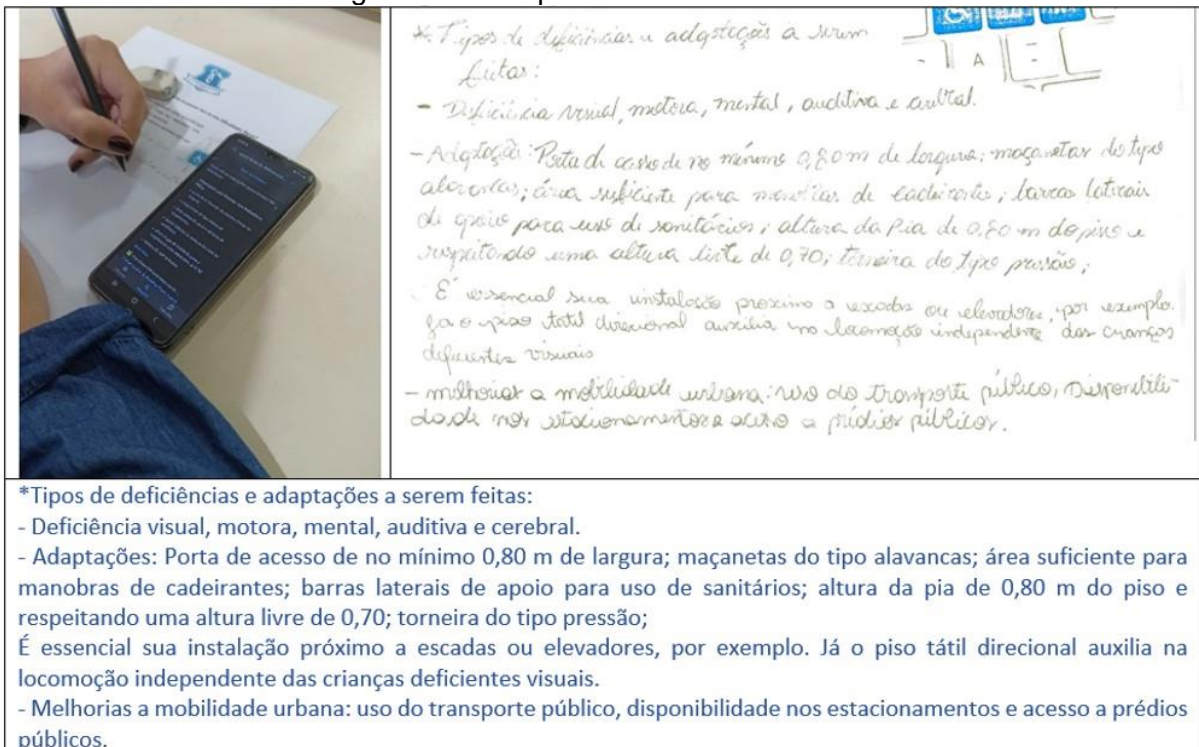 *Tipos de deficiências e adaptações a serem
feitas:
- Deficiência visual, motora, mental, auditiva e
- Adaptações: Porta de acesso de no mínimo 0,80 m de largura; maçanetas do tipo
alavancas; área suficiente para manobras de cadeirantes; barras laterais
de apoio para uso de sanitários; altura da pia de 0,80 m do piso e
respeitando uma altura livre de 0,70; torneira do tipo pressão;
É essencial sua instalação proximo a escadas ou elevadores, por exemplo.
Ja o piso tatil direcional auxilia na locomoção independente das crianças
deficientes visuais
- melhorias a mobilidade urbana: uso do transporte público, disponibili-
dade nos estacionamentos e acesso a prédios públicos.
A
*Tipos de deficiências e adaptações a serem feitas:
- Deficiência visual, motora, mental, auditiva e cerebral.
- Adaptações: Porta de acesso de no mínimo 0,80 m de largura; maçanetas do tipo alavancas; área suficiente para
manobras de cadeirantes; barras laterais de apoio para uso de sanitários; altura da pia de 0,80 m do piso e
respeitando uma altura livre de 0,70; torneira do tipo pressão;
É essencial sua instalação próximo a escadas ou elevadores, por exemplo. Já o piso tátil direcional auxilia na
locomoção independente das crianças deficientes visuais.
- Melhorias a mobilidade urbana: uso do transporte público, disponibilidade nos estacionamentos e acesso a prédios
públicos.